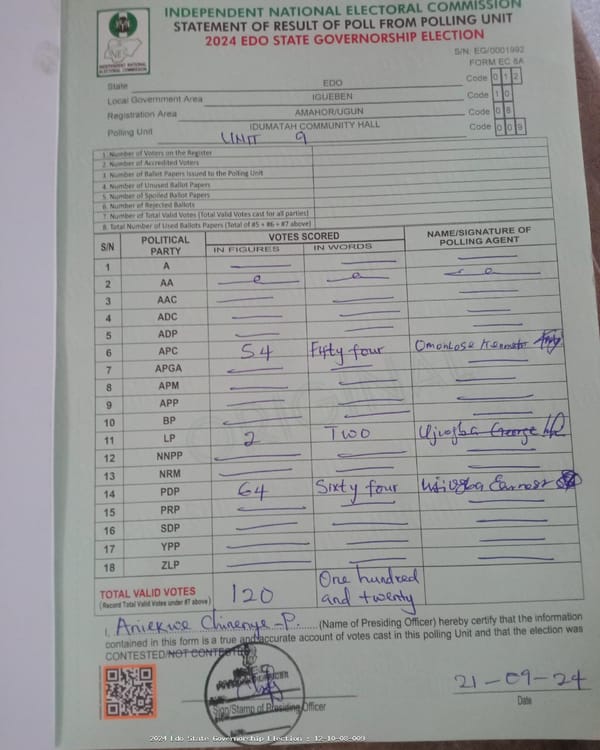 INDEPENDENT NATIONAL ELECTORAL COMMISSION
STATEMENT OF RESULT OF POLL FROM POLLING UNIT
2024 EDO STATE GOVERNORSHIP ELECTION
S/N: EG/0001992
FORM EC 8A
INDEPENDENT NATIONAL ELECTORAL COMMISSION
State EDO Code 012
Local Government Area IGUEBEN Code 10
Registration Area AMAHOR/UGUN Code 08
Polling Unit IDUMATAH COMMUNITY HALL Code 009
UNIT 9
1. Number of Voters on the Register
2. Number of Accredited Voters
3. Number of Ballot Papers Issued to the Polling Unit
4. Number of Unused Ballot Papers
5. Number of Spoiled Ballot Papers
6. Number of Rejected Ballots
7. Number of Total Valid Votes (Total Valid Votes cast for all parties)
8. Total Number of Used Ballots Papers (Total of #5 + #6 + #7 above)
S/N POLITICAL PARTY VOTES SCORED NAME/SIGNATURE OF POLLING AGENT
IN FIGURES IN WORDS
1 A
2 AA
3 AAC
4 ADC
5 ADP
6 APC 54 Fifty four
7 APGA
8 APM
9 APP
10 BP
11 LP 2 Two George
12 NNPP
13 NRM
14 PDP 64 Sixty four
15 PRP
16 SDP
17 YPP
18 ZLP
TOTAL VALID VOTES 120 One hundred and twenty
(Record Total Valid Votes under #7 above)
I, Aniekwe Chinenye -P. (Name of Presiding Officer) hereby certify that the information
contained in this form is a true and accurate account of votes cast in this polling Unit and that the election was
CONTESTED/NOT CONTESTED
21-09-24
Sign/Stamp of Presiding Officer Date
2024 Edo State Governorship Election : 12-10-08-009